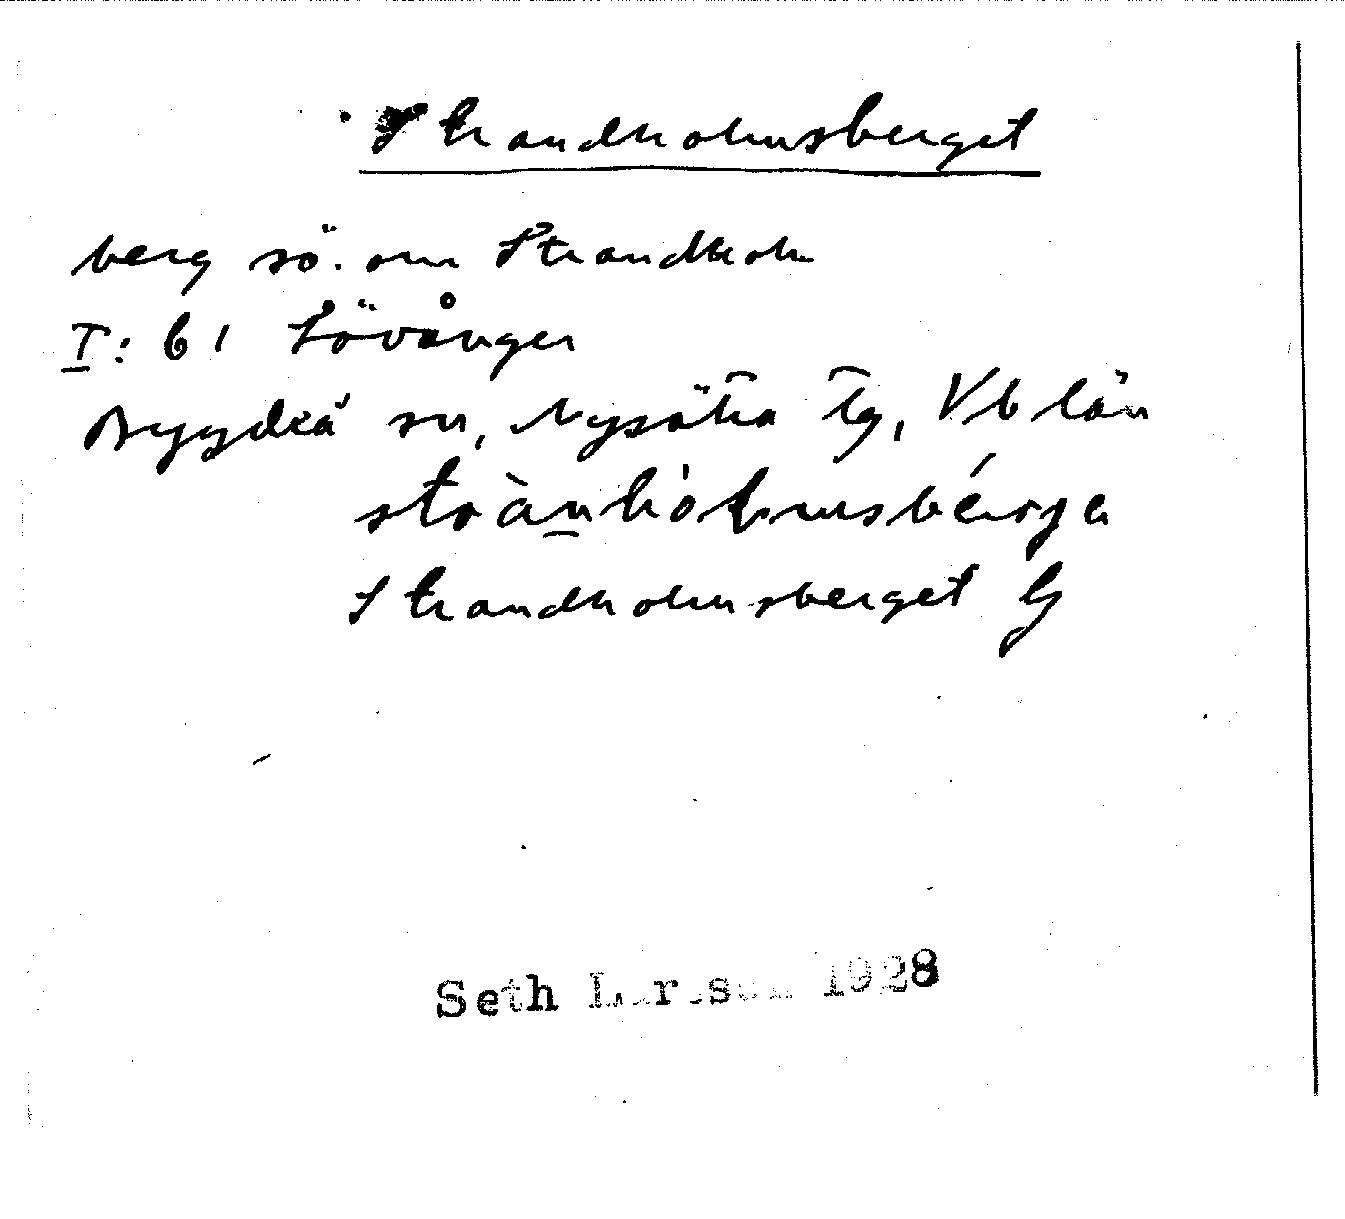 Strandholmsberget
berg sö. om Strandholm
I: 61 Lövånger
Bygdeå sn, Nysätra tg, Vb län
strànhólmsbérje
Strandholmsberget
Seth Larsson 1928